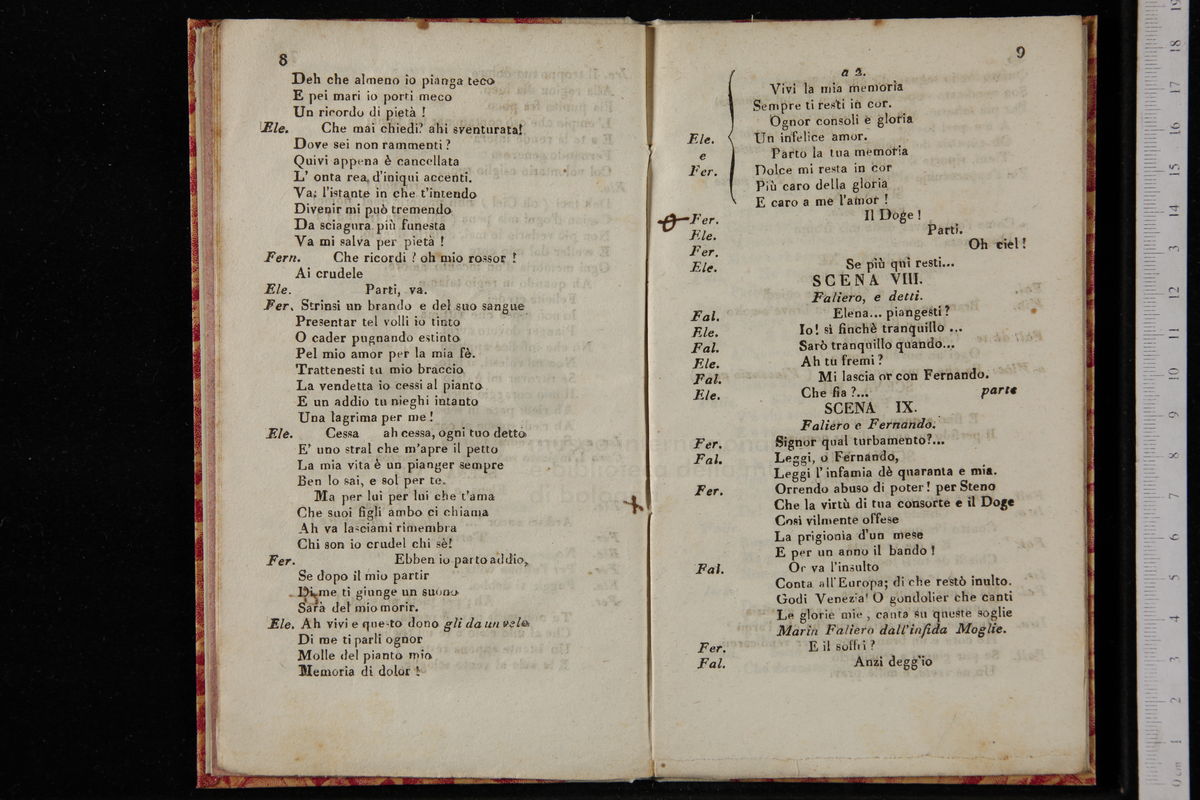 8
Deh che almeno io pianga teco
E pei mari io porti meco
Un ricordo di pietà !
Ele. Che mai chiedi? ahi sventurata!
Dove sei non rammenti ?
Quivi appena è cancellata
L' onta rea d'iniqui accenti.
Va; l'istante in che t'intendo
Divenir mi può tremendo
Da sciagura più funesta
Va mi salva per pietà !
Fern. Che ricordi ! oh mio rossor !
Ai crudele
Ele. Parti, va.
Fer. Strinsi un brando e del suo sangue
Presentar tel volli io tinto
O cader pugnando estinto
Pel mio amor per la mia fè.
Trattenesti tu mio braccio
La vendetta io cessi al pianto
E un addio tu nieghi intanto
Una lagrima per me !
Ele. Cessa ah cessa, ogni tuo detto
E' uno stral che m'apre il petto
La mia vita è un pianger sempre
Ben lo sai, e sol per te.
Ma per lui per lui che t'ama
Che suoi figli ambo ci chiama
Ah va lasciami rimembra
Chi son io crudel chi sè!
Fer. Ebben io parto addio,
Se dopo il mio partir
Di me ti giunge un suono
Sarà del mio morir.
Ele. Ah vivi e questo dono gli da un velo
Di me ti parli ognor
Molle del pianto mio
Memoria di dolor !
9
a 2.
Vivi la mia memoria
Sempre ti resti in cor.
Ognor consoli e gloria
Ele. Un infelice amor.
e Parto la tua memoria
Fer. Dolce mi resta in cor
Più caro della gloria
E caro a me l'amor !
Fer. Il Doge !
Ele. Parti.
Fer. Oh ciel !
Ele. Se più qui resti...
SCENA VIII.
Faliero, e detti.
Fal. Elena... piangesti ?
Ele. Io! sì finchè tranquillo ...
Fal. Sarò tranquillo quando...
Ele. Ah tu fremi ?
Fal. Mi lascia or con Fernando.
Ele. Che fia ?... parte
SCENA IX.
Faliero e Fernando.
Fer. Signor qual turbamento?...
Fal. Leggi, o Fernando,
Leggi l'infamia dè quaranta e mia.
Fer. Orrendo abuso di poter! per Steno
Che la virtù di tua consorte e il Doge
Così vilmente offese
La prigionia d'un mese
E per un anno il bando !
Fal. Or va l'insulto
Conta all'Europa; di che restò inulto.
Godi Venezia! O gondolier che canti
Le glorie mie , canta su queste soglie
Marin Faliero dall'infida Moglie.
Fer. E il soffri ?
Fal. Anzi degg'io